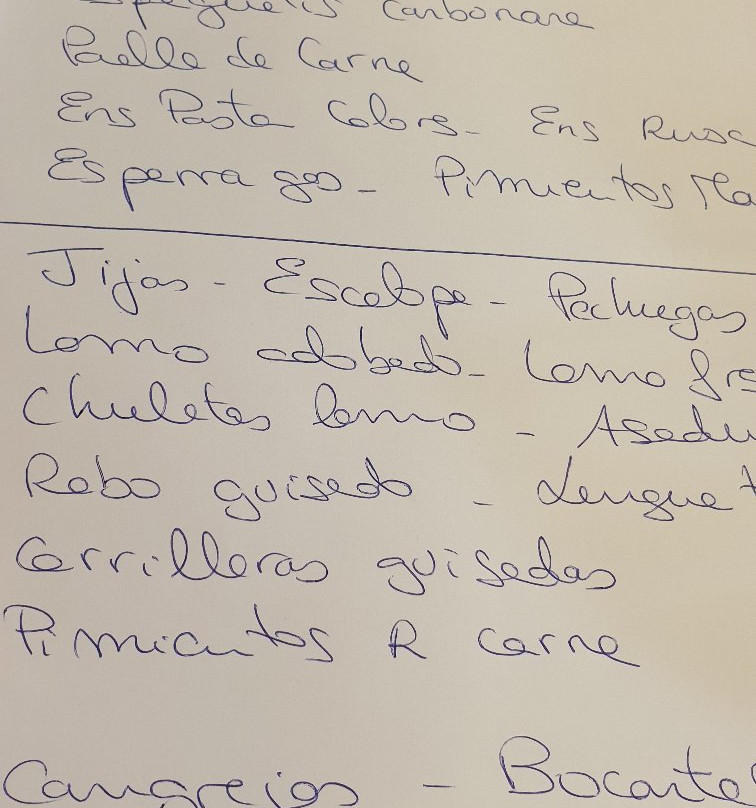 Carbonara
Paella de Carne
Ens Pasta Colors - Ens Rusa
Esparragos - Pimientos
Jijas - Escalope - Pechugas
Lomo adobado - Lomo
Chuletas lomo -
Rabo guisado - Lengua
Carrilleras guisadas
Pimientos R carne
Cangrejos - Bocarto